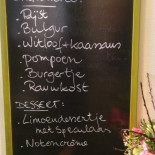 . Rijst
. Bulgur
. Witloof+kaassaus
. pompoen
. Burgertje
. Rauwkost
DESSERT:
. Limoendessertje
met Speculaas
. Notencrème